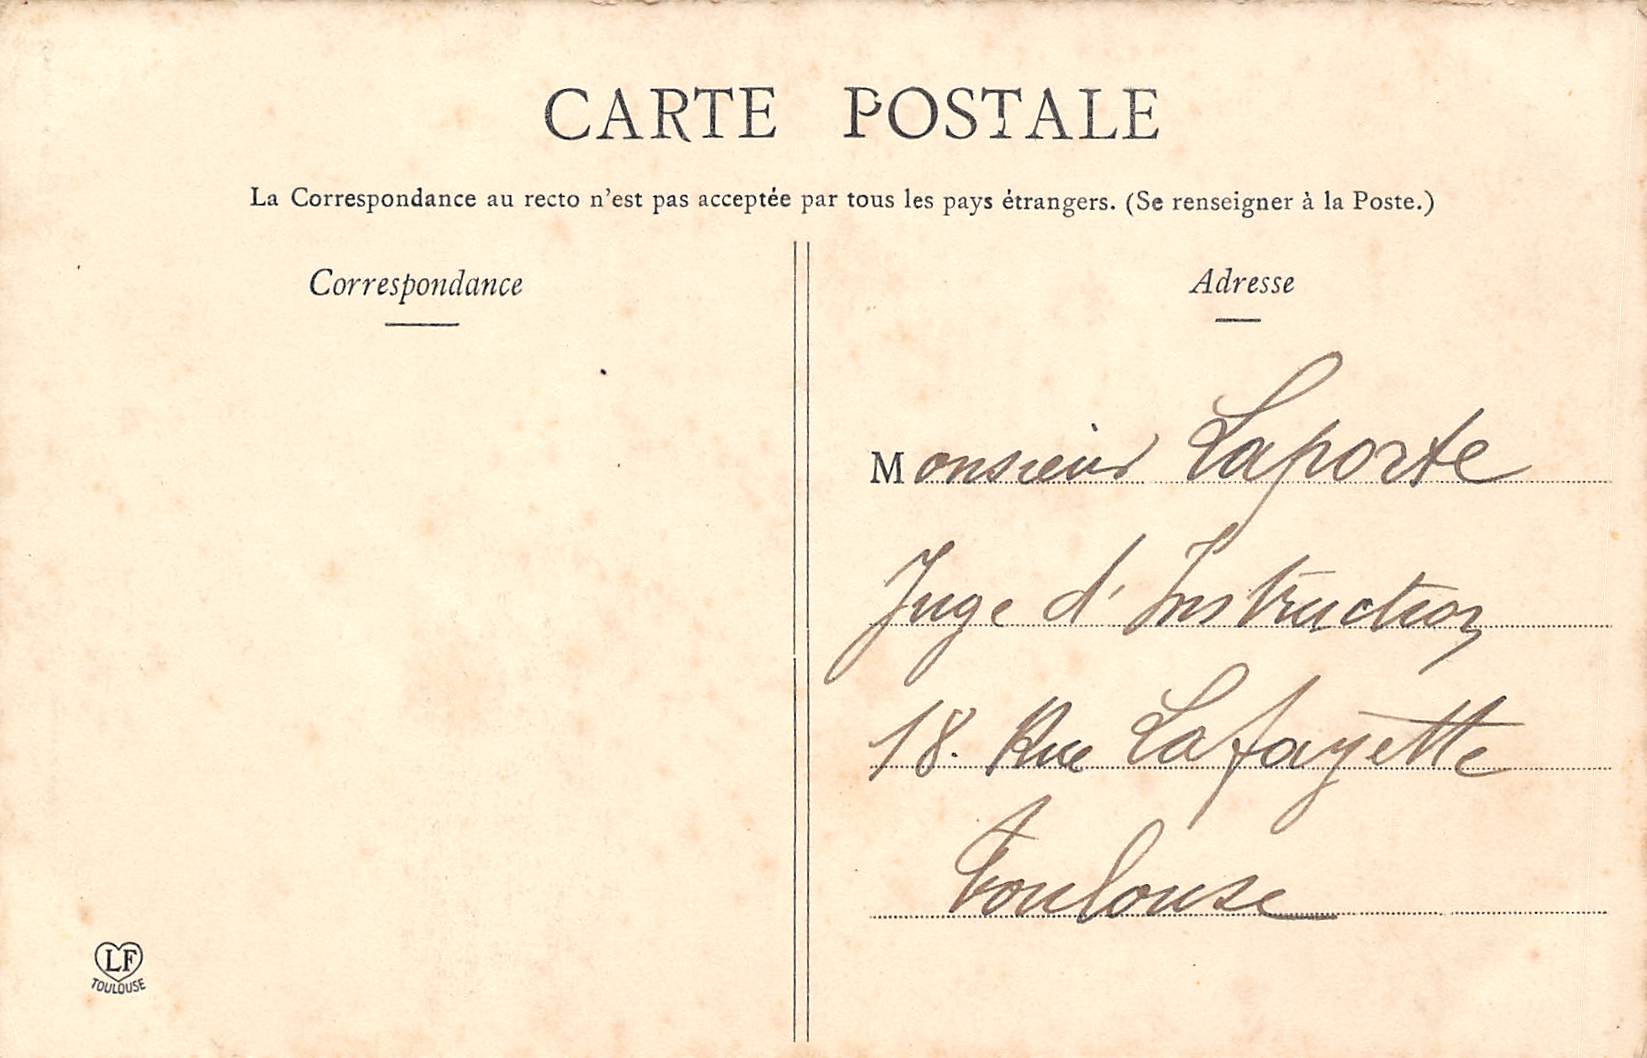 CARTE POSTALE
La Correspondance au recto n'est pas acceptée par tous les pays étrangers. (Se renseigner à la Poste.)
Correspondance
Adresse
Monsieur Laporte
Juge d'Instruction
18. Rue Lafayette
Toulouse
LF
TOULOUSE